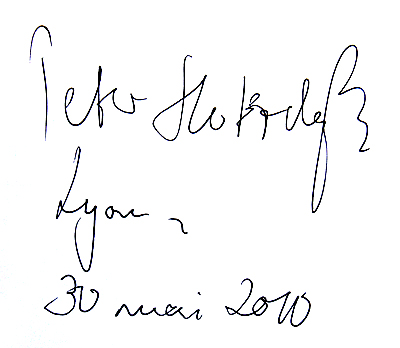 Peter Sloterdijk
Lyon,
30 mai 2010